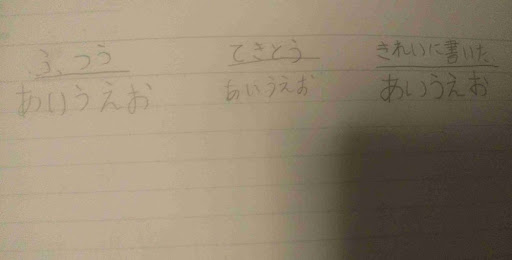 ふつう
あいうえお
てきとう
あいうえお
きれいに書いた
あいうえお